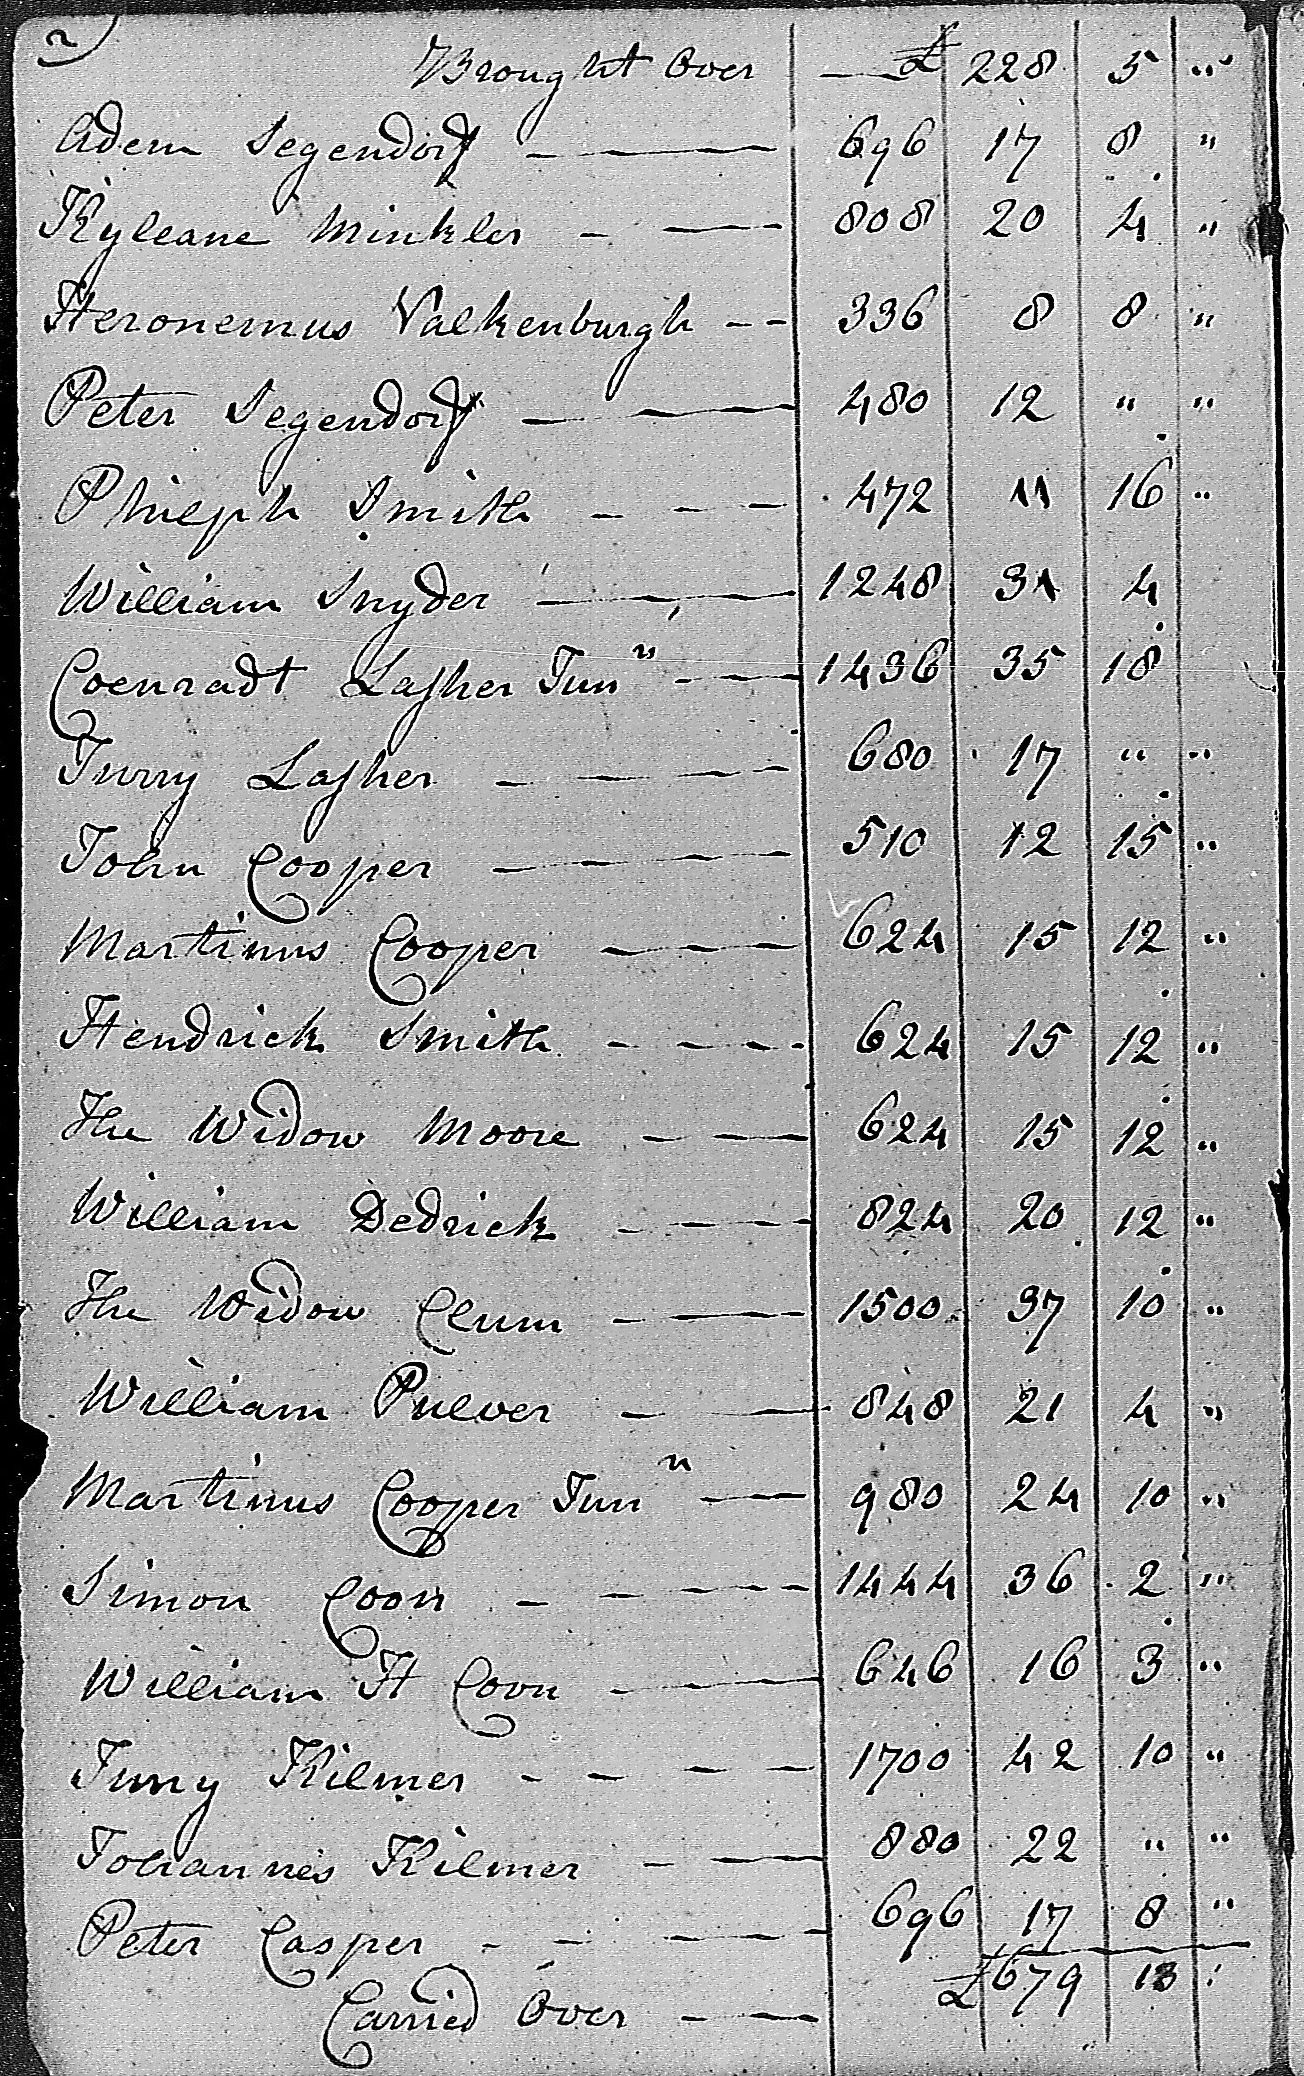 2)
Brought Over — £ 228 5 "
Adem Segendorf — 696 17 8 "
Kyleane Minkler — 808 20 4 "
Heronemus Valkenburgh -- 336 8 8 "
Peter Segendorf — 480 12 " "
Phileph Smith --- 472 11 16 "
William Snyder — 1248 31 4
Coenradt Lasher Junr — 1436 35 18
Jurry Lasher — 680 17 " "
John Cooper — 510 12 15 "
Martinus Cooper — 624 15 12 "
Hendrick Smith --- 624 15 12 "
The Widow Moore — 624 15 12 "
William Dedrick — 824 20 12 "
The Widow Clum — 1500 37 10 "
William Pulver — 848 21 4 "
Martinus Cooper Junr — 980 24 10 "
Simon Coon — 1444 36 2 "
William H Coon — 646 16 3 "
Jurry Kilmer ---- 1700 42 10 "
Johannes Kilmer — 880 22 " "
Peter Casper — 696 17 8 "
Carried Over — £ 679 13 :